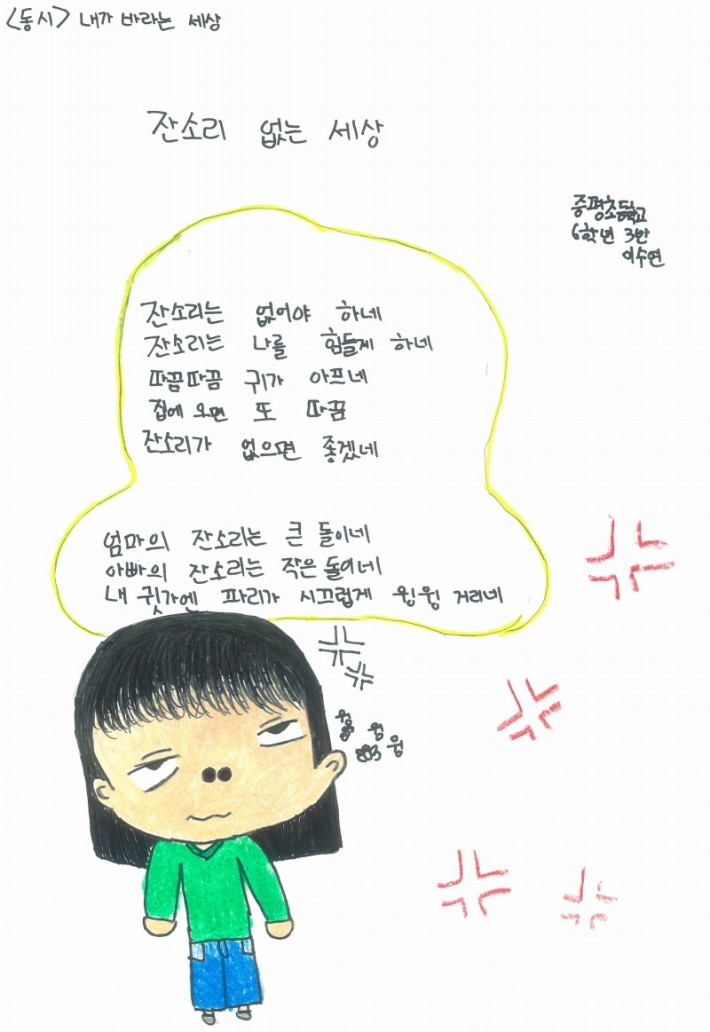 <동시> 내가 바라는 세상
잔소리 없는 세상
증평초등학교
6학년 3반
이수연
잔소리는 없어야 하네
잔소리는 나를 힘들게 하네
따끔따끔 귀가 아프네
집에 오면 또 따끔
잔소리가 없으면 좋겠네
엄마의 잔소리는 큰 돌이네
아빠의 잔소리는 작은 돌이네
내 귓가엔 파리가 시끄럽게 윙윙 거리네
윙 윙
윙